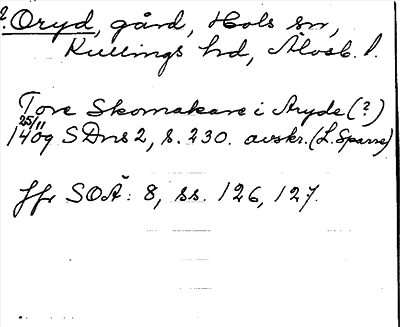 ?Oryd, gård, Hols sn,
Kullings hd, Älvsb. l.
Tove Skomakare i Aryde (?)
25/11
1409 SDns 2, s. 230. avskr. (L. Sparre)
Jfr SOÄ: 8, ss. 126, 127.